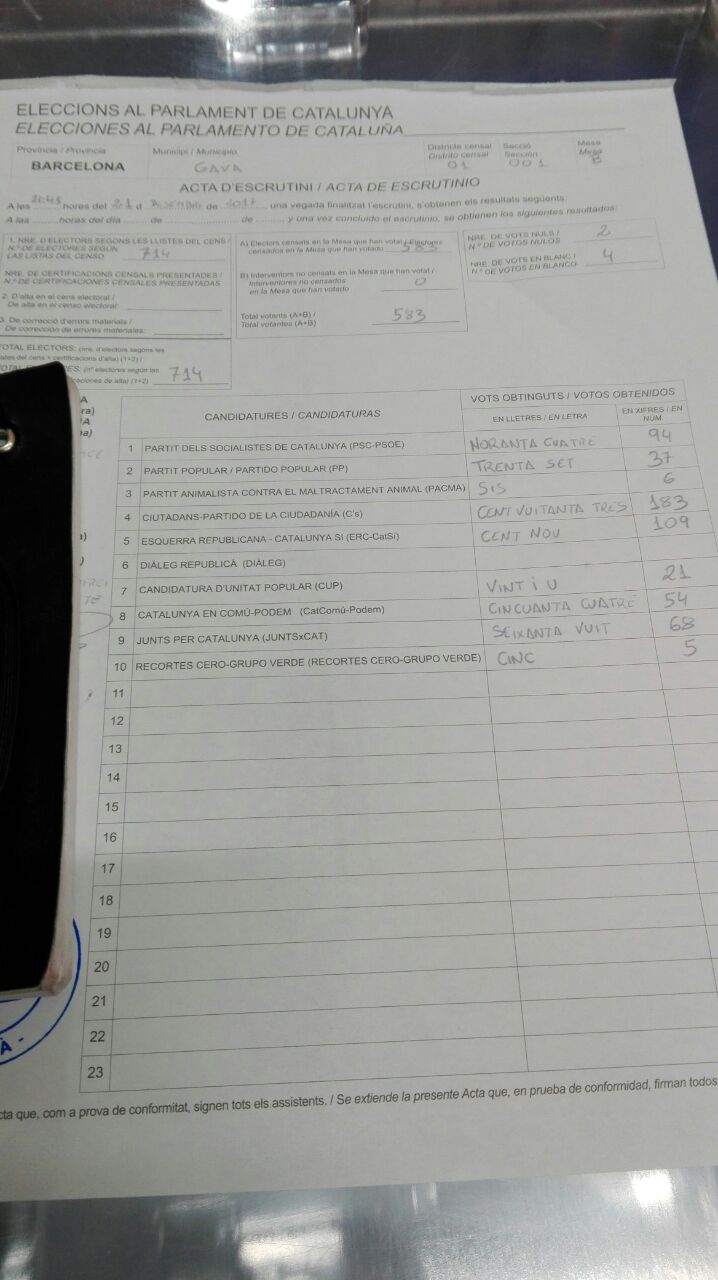 ELECCIONS AL PARLAMENT DE CATALUNYA
ELECCIONES AL PARLAMENTO DE CATALUÑA
Província / Provincia Municipi / Municipio Districte censal Secció Mesa
Distrito censal Sección Mesa
BARCELONA GAVA 01 001 B
ACTA D'ESCRUTINI / ACTA DE ESCRUTINIO
A les 20:45 hores del 21 d DESEMBRE de 2017 una vegada finalitzat l'escrutini, s'obtenen els resultats següents:
A las horas del día de de y una vez concluido el escrutinio, se obtienen los siguientes resultados:
1. NRE. D'ELECTORS SEGONS LES LLISTES DEL CENS /
N.º DE ELECTORES SEGÚN
LAS LISTAS DEL CENSO 714
NRE. DE CERTIFICACIONS CENSALS PRESENTADES /
N.º DE CERTIFICACIONES CENSALES PRESENTADAS
2. D'alta en el cens electoral /
De alta en el censo electoral:
3. De correcció d'errors materials /
De corrección de errores materiales:
TOTAL ELECTORS: (nre. d'electors segons les
certificacions d'alta) (1+2) /
(nº electores según las
caciones de alta) (1+2) 714
A) Electors censats en la Mesa que han votat / Electores
censados en la Mesa que han votado 583
B) Interventors no censats en la Mesa que han votat /
Interventores no censados
en la Mesa que han votado 0
Total votants (A+B) /
Total votantes (A+B) 583
NRE. DE VOTS NULS /
N.º DE VOTOS NULOS 2
NRE. DE VOTS EN BLANC /
N.º DE VOTOS EN BLANCO 4
CANDIDATURES / CANDIDATURAS
VOTS OBTINGUTS / VOTOS OBTENIDOS
EN LLETRES / EN LETRA EN XIFRES / EN NÚM.
1 PARTIT DELS SOCIALISTES DE CATALUNYA (PSC-PSOE) NORANTA CUATRE 94
2 PARTIT POPULAR / PARTIDO POPULAR (PP) TRENTA SET 37
3 PARTIT ANIMALISTA CONTRA EL MALTRACTAMENT ANIMAL (PACMA) SIS 6
4 CIUTADANS-PARTIDO DE LA CIUDADANÍA (C's) CENT VUITANTA TRES 183
5 ESQUERRA REPUBLICANA - CATALUNYA SÍ (ERC-CatSí) CENT NOU 109
6 DIÀLEG REPUBLICÀ (DIÀLEG)
7 CANDIDATURA D'UNITAT POPULAR (CUP) VINT i U 21
8 CATALUNYA EN COMÚ-PODEM (CatComú-Podem) CINCUANTA CUATRE 54
9 JUNTS PER CATALUNYA (JUNTSxCAT) SEIXANTA VUIT 68
10 RECORTES CERO-GRUPO VERDE (RECORTES CERO-GRUPO VERDE) CINC 5
11
12
13
14
15
16
17
18
19
20
21
22
23
cta que, com a prova de conformitat, signen tots els assistents. / Se extiende la presente Acta que, en prueba de conformidad, firman todos